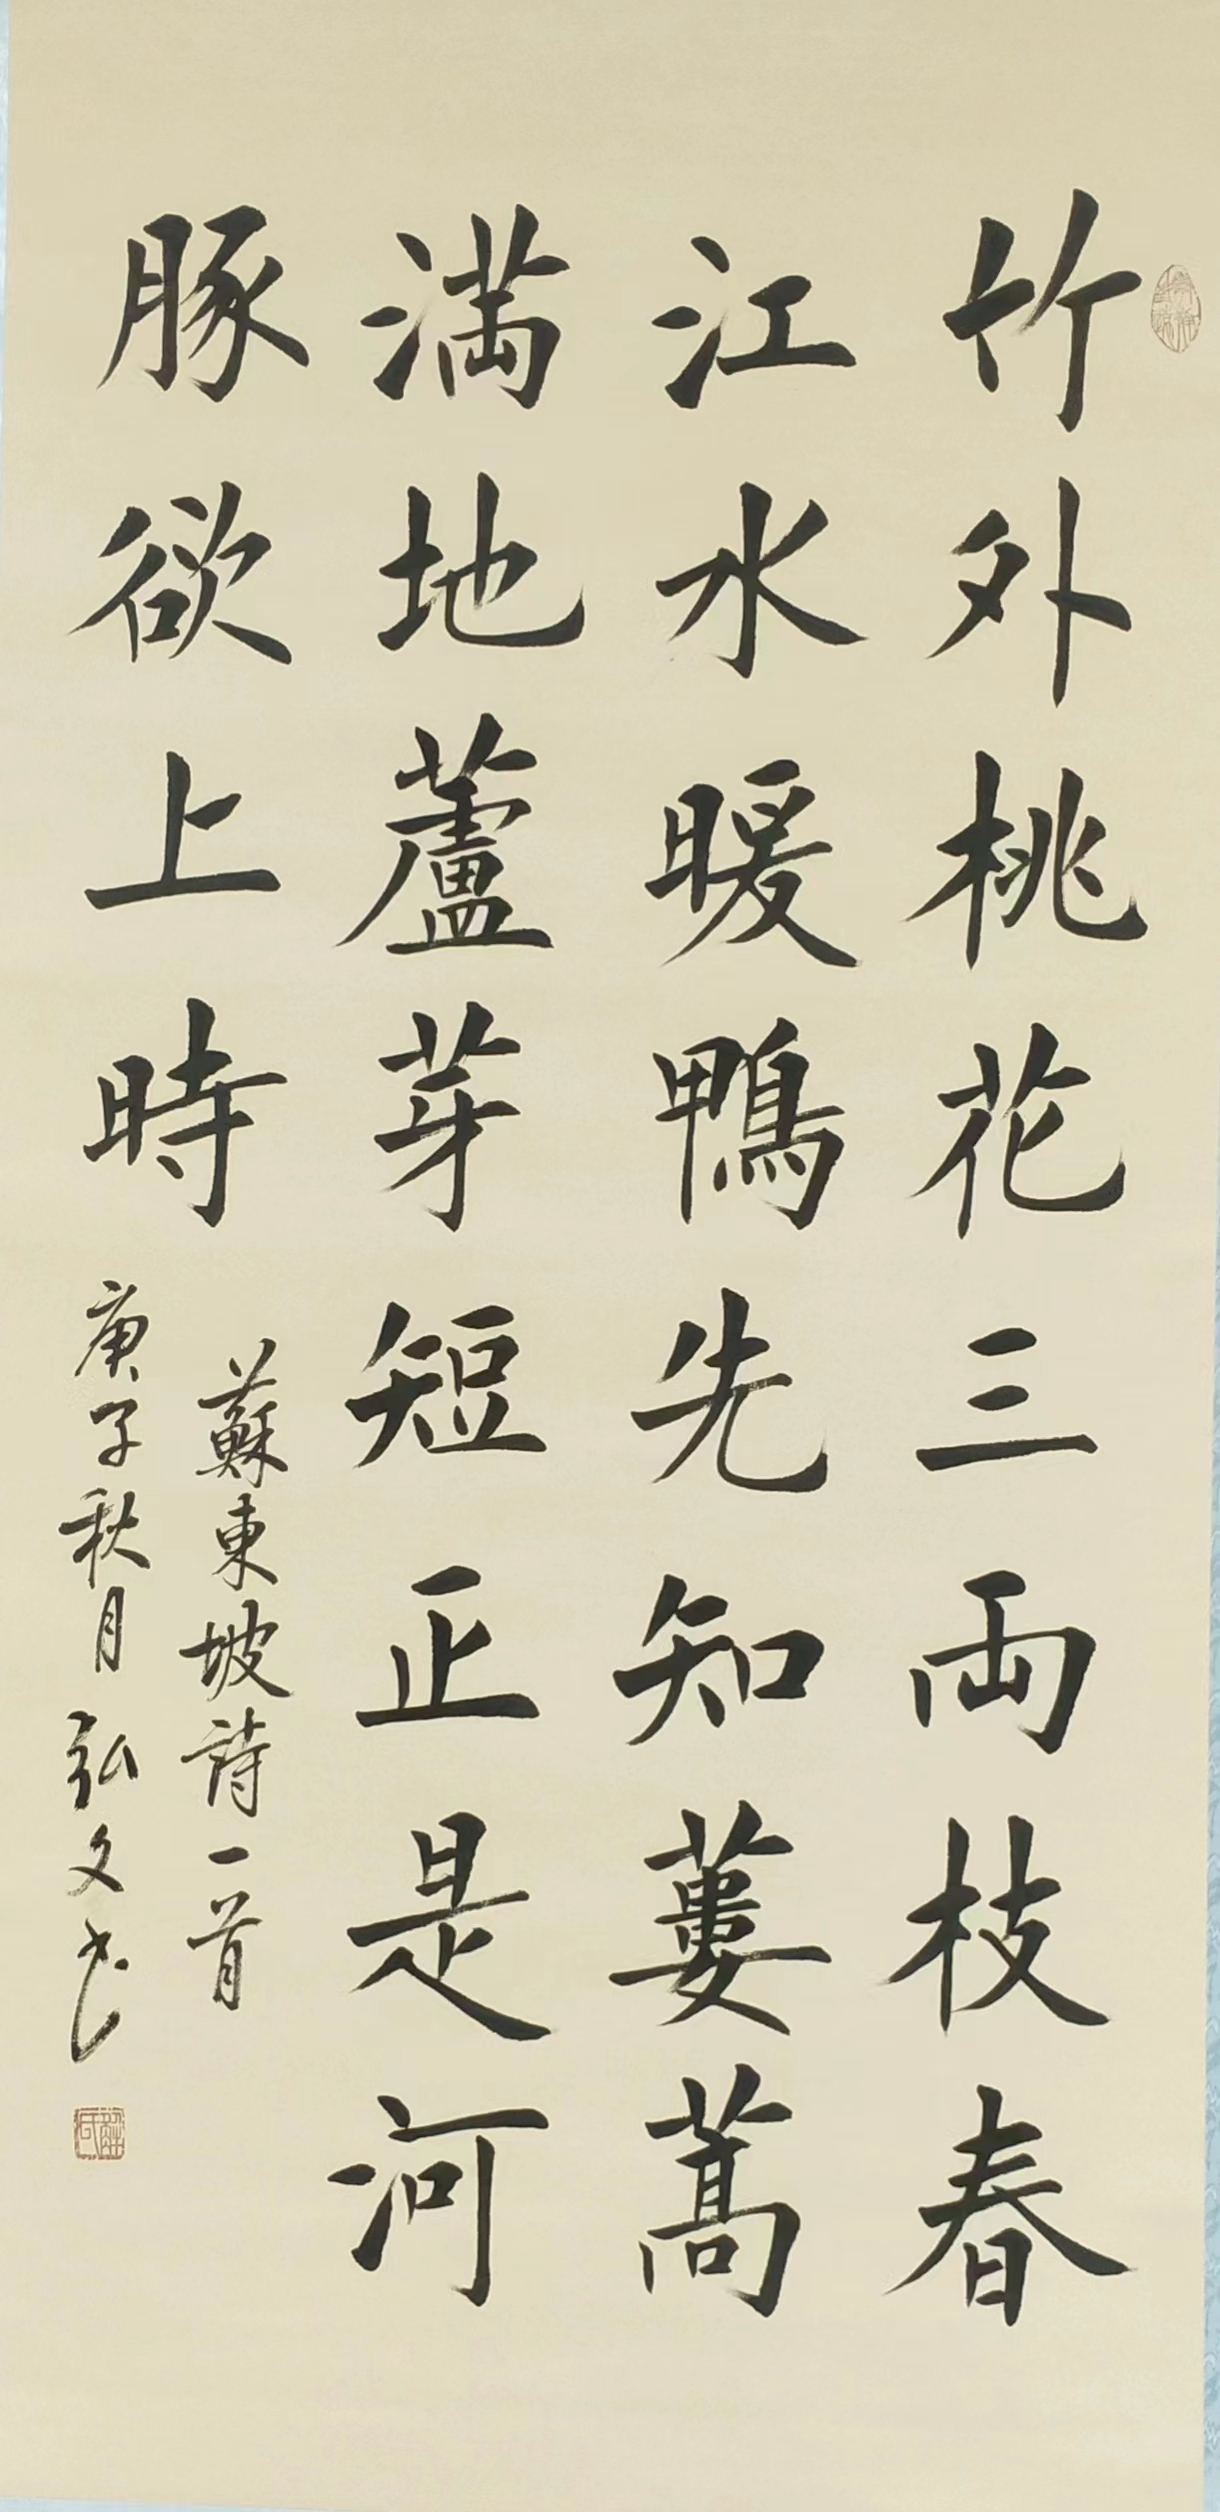 竹外桃花三両枝春
江水暖鴨先知蔞蒿
満地蘆芽短正是河
豚欲上時
蘇東坡詩一首
庚子秋月弘文书